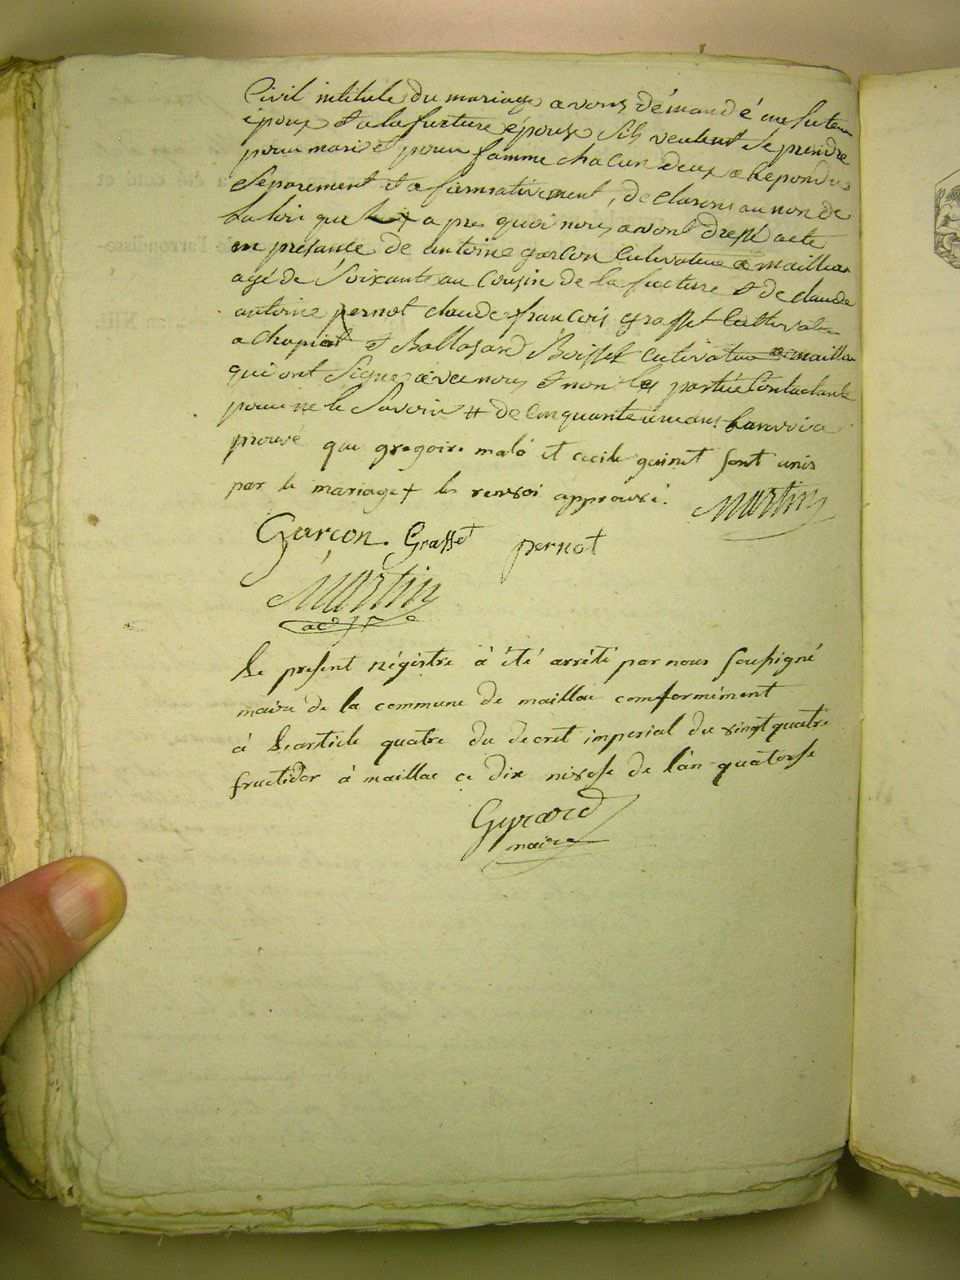 Civil intitule du mariage avons démandé au futeur
époux et a la furture épouse sils veulent se prendre
pour mari et pour famme chacun deux a Répondus
Séparement et afirmativement, declarons au non de
La loi que + apres quoi nous avont dressé acte
en présance de antoine garcon Cultivateur a maillac
agé de Soixante an cousin de la furture et de claude
antoine pernot claude françois grasset Cultivateur
a chapiat et Baltasard Boisset Cultivateur a maillac
qui ont Signes avec nous et non les partie Contractante
pour ne le Savoir # de Cinquante
prouvé que gregoire malo et cecile guinet sont unis
par le mariage + le renvoi approuvé. Martin
Garcon. Grasset pernot
Martin
Le present régistre à été arrêté par nous Soussigné
maire de la commune de maillac comformément
à Learticle quatre du decret imperial du vingt quatre
fructidor à maillac ce dix nivose de l'àn quatorse
Gyrard
maire